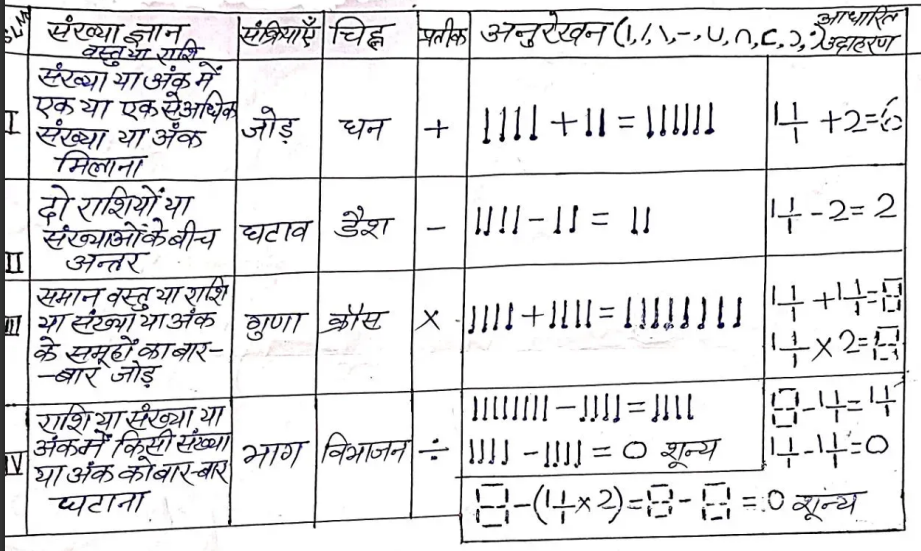 SLNo संख्या ज्ञान वस्तु या राशि संक्रियाएँ चिह्न प्रतीक अनुरेखन (।, /, \, -, U, ∩, C, Ɔ, आधारित उदाहरण
I संख्या या अंक में एक या एक से अधिक संख्या या अंक मिलाना जोड़ धन + |||| + || = |||||| 4 + 2 = 6
II दो राशियों या संख्याओं के बीच अन्तर घटाव डैश - |||| - || = || 4 - 2 = 2
III समान वस्तु या राशि या संख्या या अंक के समूहों का बार-बार जोड़ गुणा क्रौस × |||| + |||| = |||||||| 4 + 4 = 8
4 × 2 = 8
IV राशि या संख्या या अंक में किसी संख्या या अंक को बार-बार घटाना भाग विभाजन ÷ |||||||| - |||| = |||| 8 - 4 = 4
|||| - |||| = 0 शून्य 4 - 4 = 0
8 - (4 × 2) = 8 - 8 = 0 शून्य